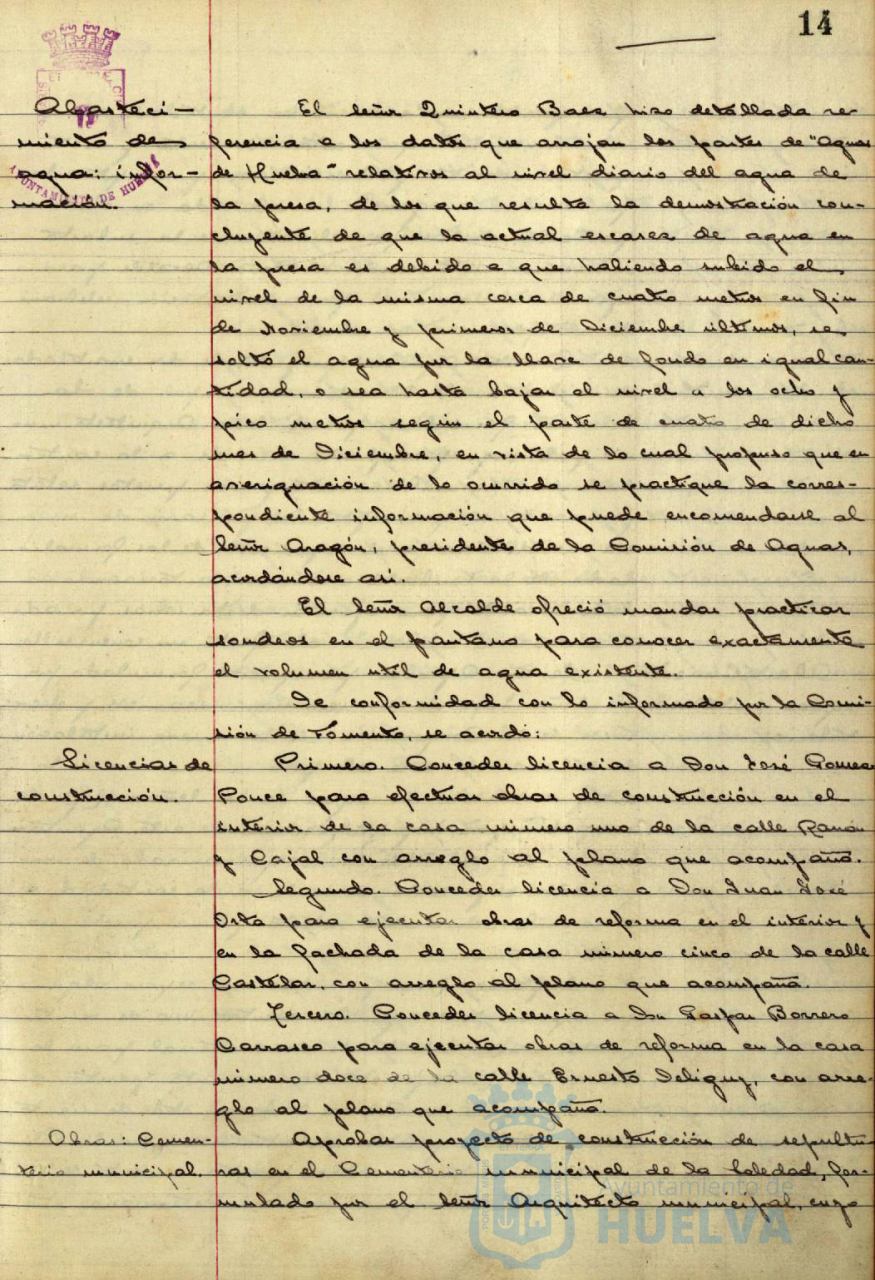 14
Abasteci-
miento de
agua: infor-
mación.
AYUNTAMIENTO DE HUELVA
El Señor Quintero Baez hizo detallada re-
ferencia a los datos que arrojan los partes de "Aguas
de Huelva" relativos al nivel diario del agua de
la presa, de los que resulta la demostración con-
cluyente de que la actual escasez de agua en
la presa es debido a que habiendo subido el
nivel de la misma cerca de cuatro metros en fin
de Noviembre y primeros de Diciembre últimos, se
soltó el agua por la llave de fondo en igual can-
tidad, o sea hasta bajar el nivel a los ocho y
pico metros según el parte de cuatro de dicho
mes de Diciembre, en vista de lo cual propuso que en
averiguación de lo ocurrido se practique la corres-
pondiente información que puede encomendarse al
Señor Aragón, presidente de la Comisión de Aguas,
acordándose así.
El Señor Alcalde ofreció mandar practicar
sondeos en el pantano para conocer exactamente
el volumen util de agua existente.
De conformidad con lo informado por la Comi-
sión de Fomento, se acordó:
Licencias de
construcción.
Primero. Conceder licencia a Don José Gomez
Ponce para efectuar obras de construcción en el
interior de la casa número uno de la calle Ramón
y Cajal con arreglo al plano que acompaña.
Segundo. Conceder licencia a Don Juan José
Orta para ejecutar obras de reforma en el interior y
en la fachada de la casa número cinco de la calle
Castelar, con arreglo al plano que acompaña.
Tercero. Conceder licencia a Don Gaspar Borrero
Carrasco para ejecutar obras de reforma en la casa
número doce de la calle Ernesto Deligny, con arre-
glo al plano que acompaña.
Obras: Cemen-
terio municipal.
Aprobar proyecto de construcción de sepultu-
ras en el Cementerio municipal de la Soledad, for-
mulado por el Señor Arquitecto municipal, cuyo
Ayuntamiento de
HUELVA